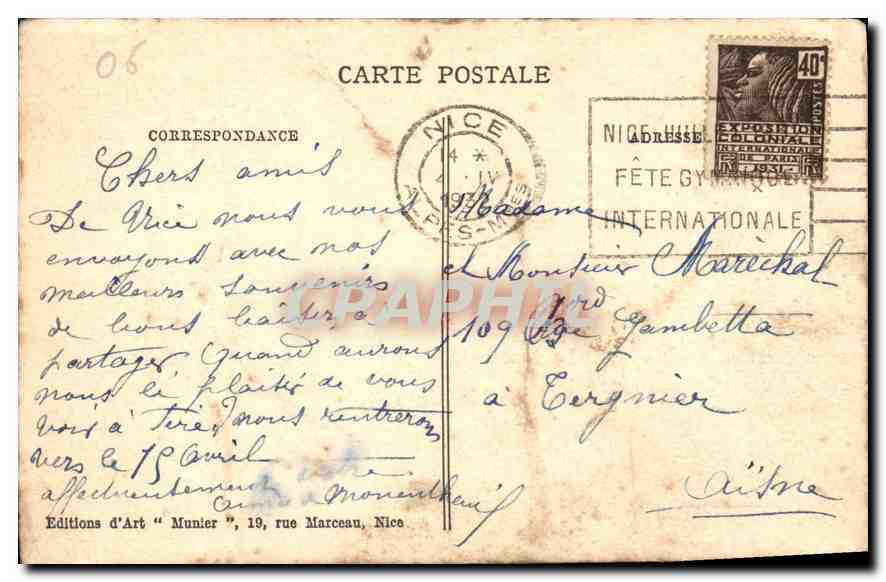 06
CARTE POSTALE
CORRESPONDANCE
Chers amis
De Nice nous vous
envoyons avec nos
meilleurs souvenirs
de bons baisers à
partager Quand aurons
nous le plaisir de vous
voir à nous rentrerons
vers le 15 avril
affectueusement
Editions d'Art “ Munier ”, 19, rue Marceau, Nice
NICE
14 *
IV
ALPES-M
40c
POSTES
EXPOSITION
COLONIALE
INTERNATIONALE
DE PARIS
NICE
FÊTE GYMNIQUE
INTERNATIONALE
ADRESSE
Madame
et Monsieur Maréchal
109 Bard Gambetta
à Tergnier
Aïsne
CPAPHIL